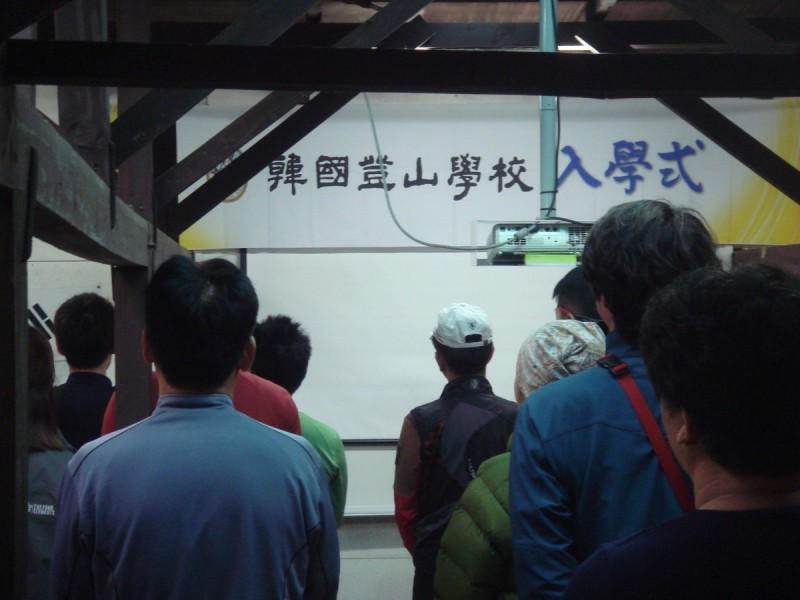 韓國登山學校 入學式